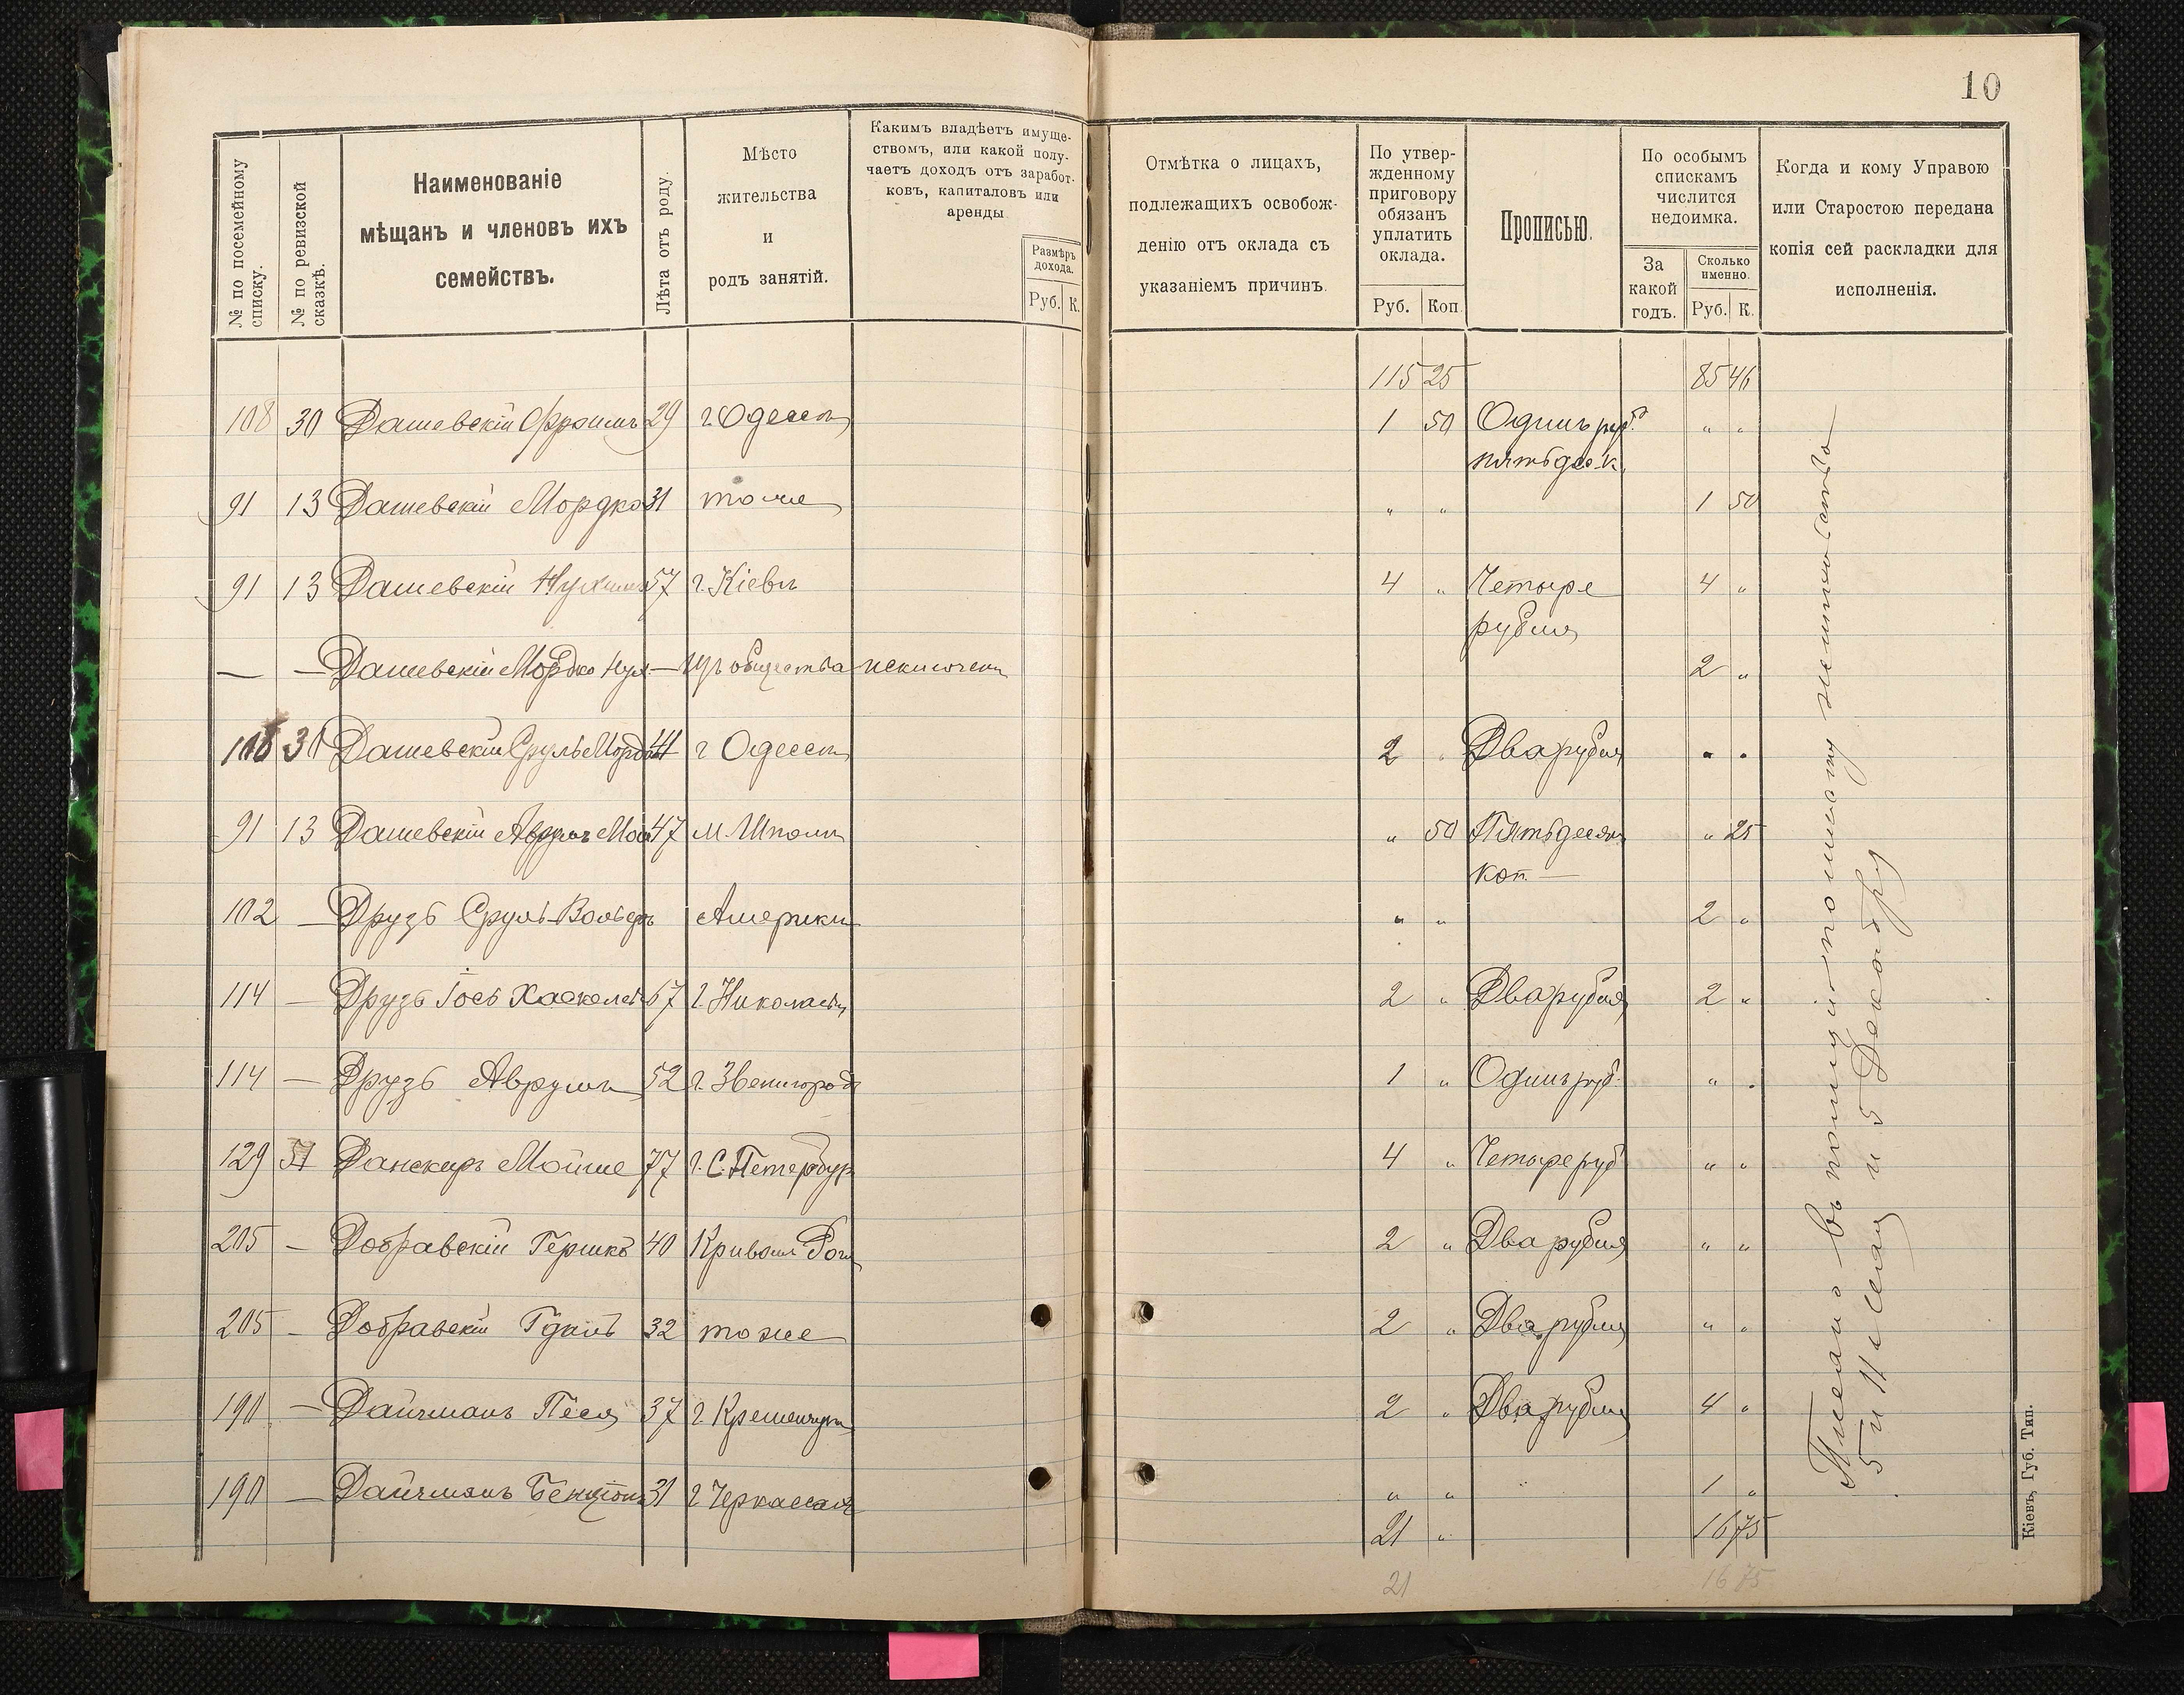 10
№ по посемейному списку.
№ по ревизской сказкѣ.
Наименованіе мѣщанъ и членовъ ихъ семействъ.
Лѣта отъ роду.
Мѣсто жительства и родъ занятій.
Какимъ владѣетъ имуществомъ, или какой получаетъ доходъ отъ заработковъ, капиталовъ или аренды.
Размѣръ дохода.
Руб. К.
Отмѣтка о лицахъ, подлежащихъ освобожденію отъ оклада съ указаніемъ причинъ.
По утвержденному приговору обязанъ уплатить оклада.
Руб. Коп.
Прописью.
По особымъ спискамъ числится недоимка.
За какой годъ.
Сколько именно.
Руб. К.
Когда и кому Управою или Старостою передана копія сей раскладки для исполненія.
115 25 85 46
108 30 Дашевскій Фроимъ 29 г. Одесса 1 50 Одинъ руб. " "
пятьдес. к.
91 13 Дашевскій Мордко 31 тоже " " 1 50
91 13 Дашевскій Нухимъ 57 г. Кіевъ 4 " Четыре 4 "
рубля
— — Дашевскій Мордко Нух. — Изъ общества исключенъ 2 "
108 30 Дашевскій Сруль Мордк 44 г Одесса 2 " Два рубля " "
91 13 Дашевскій Аврумъ Мош 47 м. Шпола " 50 Пятьдесятъ " 25
коп. —
102 — Друзь Сруль-Вольфъ Америка " " 2 "
114 — Друзь Іось Хаскелев 67 г. Николаевъ 2 " Два рубля 2 "
114 — Друзь Аврумъ 52 г. Звенигород 1 " Одинъ руб. " "
129 Данскеръ Мошке 77 г. С. Петербур 4 " Четыре руб " "
205 — Добравскій Гершко 40 Кривой Рогъ 2 " Два рубля " "
205 — Добравскій 32 тоже 2 " Два рубля " "
190 — Дайчманъ Песя 37 г Кременчугъ 2 " Два рубля 4 "
190 — Дайчманъ Бенціонъ 31 г Черкассы " " 1 "
21 " 16 75
21 16 75
Писано въ полицію по мѣсту жительства
5 и 11 Мая и 5 Декабря
Кіевъ, Губ. Тип.